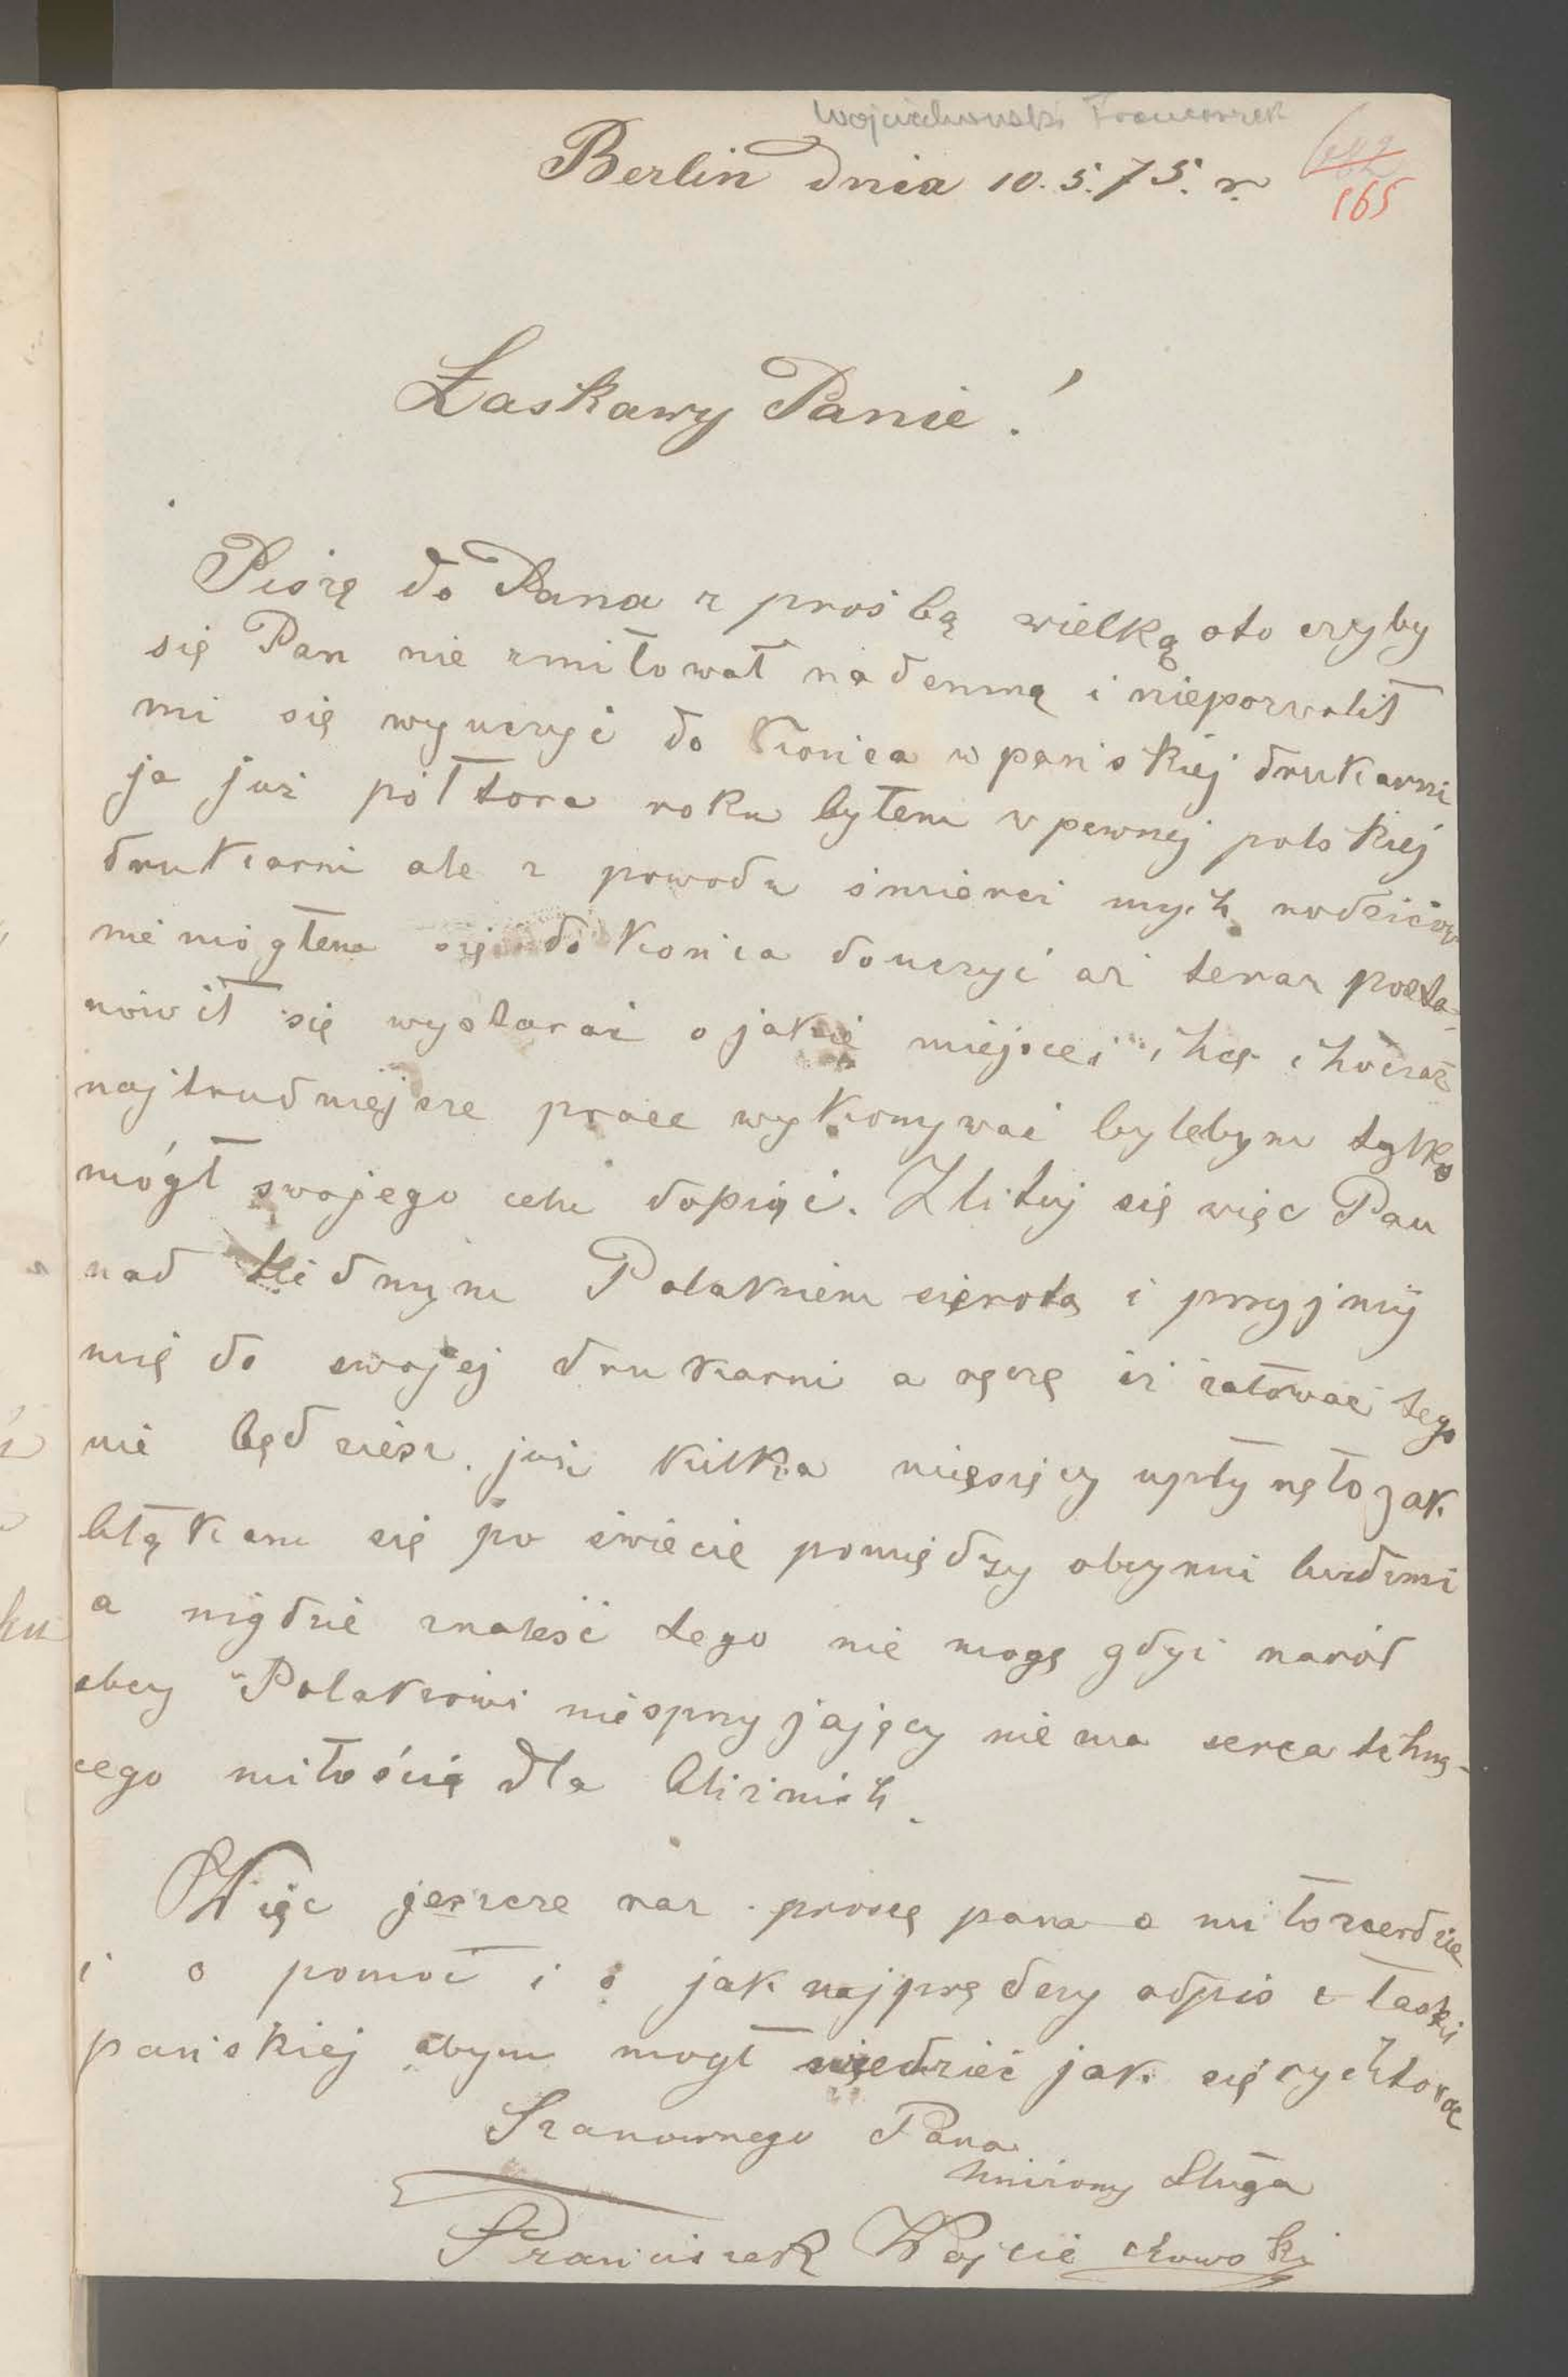 Wojciechowski Franciszek
Berlin dnia 10.5.75. r.
165
Łaskawy Panie!
Piszę do Pana z prośbą wielką oto czyby
się Pan nie zmiłował nademną i niepozwolił
mi się wyuczyć do końca w pańskiej drukarni
ja już półtora roku byłem w pewnej polskiej
drukarni ale z powodu śmierci mych rodziców
nie mógłem się do końca douczyć aż teraz posta-
nówił się wystarać o jakie miejsce i chcę chociaż
najtrudniejsze prace wykonywać bylebym tylko
mógł swojego celu dopiąć. Zlituj się więc Pan
nad biednym Polakiem sierotą i przyjmij
mię do swojej drukarni a ręczę iż żałować tego
nie będziesz. już kilka miesięcy upłynęło jak
błąkam się po świecie pomiędzy obcymi ludzmi
a nigdzie znaleść tego nie mogę gdyż naród
obcy Polakowi niesprzyjający nie ma serca tchną-
cego miłością dla bliźnich.
Więc jeszcze raz proszę pana o miłoszerdzie
i o pomoc i o jak najprędszy odpis z łaski
pańskiej abym mogł wiedzieć jak się rychtować
Szanownego Pana
Uniżony Sługa
Franciszek Wojciechowski